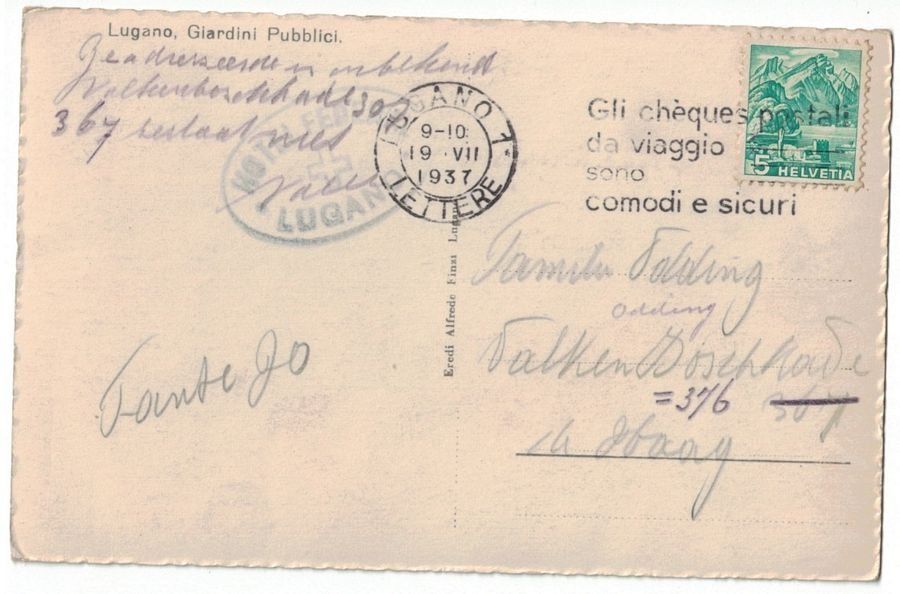 Lugano, Giardini Pubblici.
Geadresseerde onbekend
Valkenboschkade 307
367 bestaat niet
HOTEL
LUGANO
LUGANO 1
9-10
19 · VII
1937
LETTERE
Gli chèques postali
da viaggio
sono
comodi e sicuri
5 HELVETIA
Eredi Alfredo Finzi Lugano
Familie Odding
Odding
Valkenboschkade
=376 367
Haag
Tante Jo